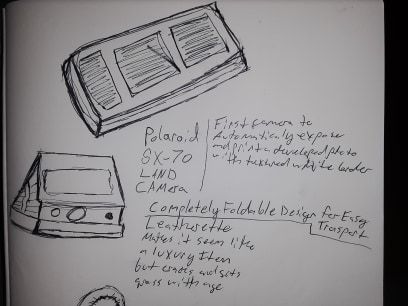 Polaroid
SX-70
LAND
CAMERA
First Camera to
Automatically expose
and print a developed photo
with textured white border
Completely Foldable Design for Easy
Transport
Leatherette
Makes it seem like
a luxury Item
but erodes and gets
gross with age